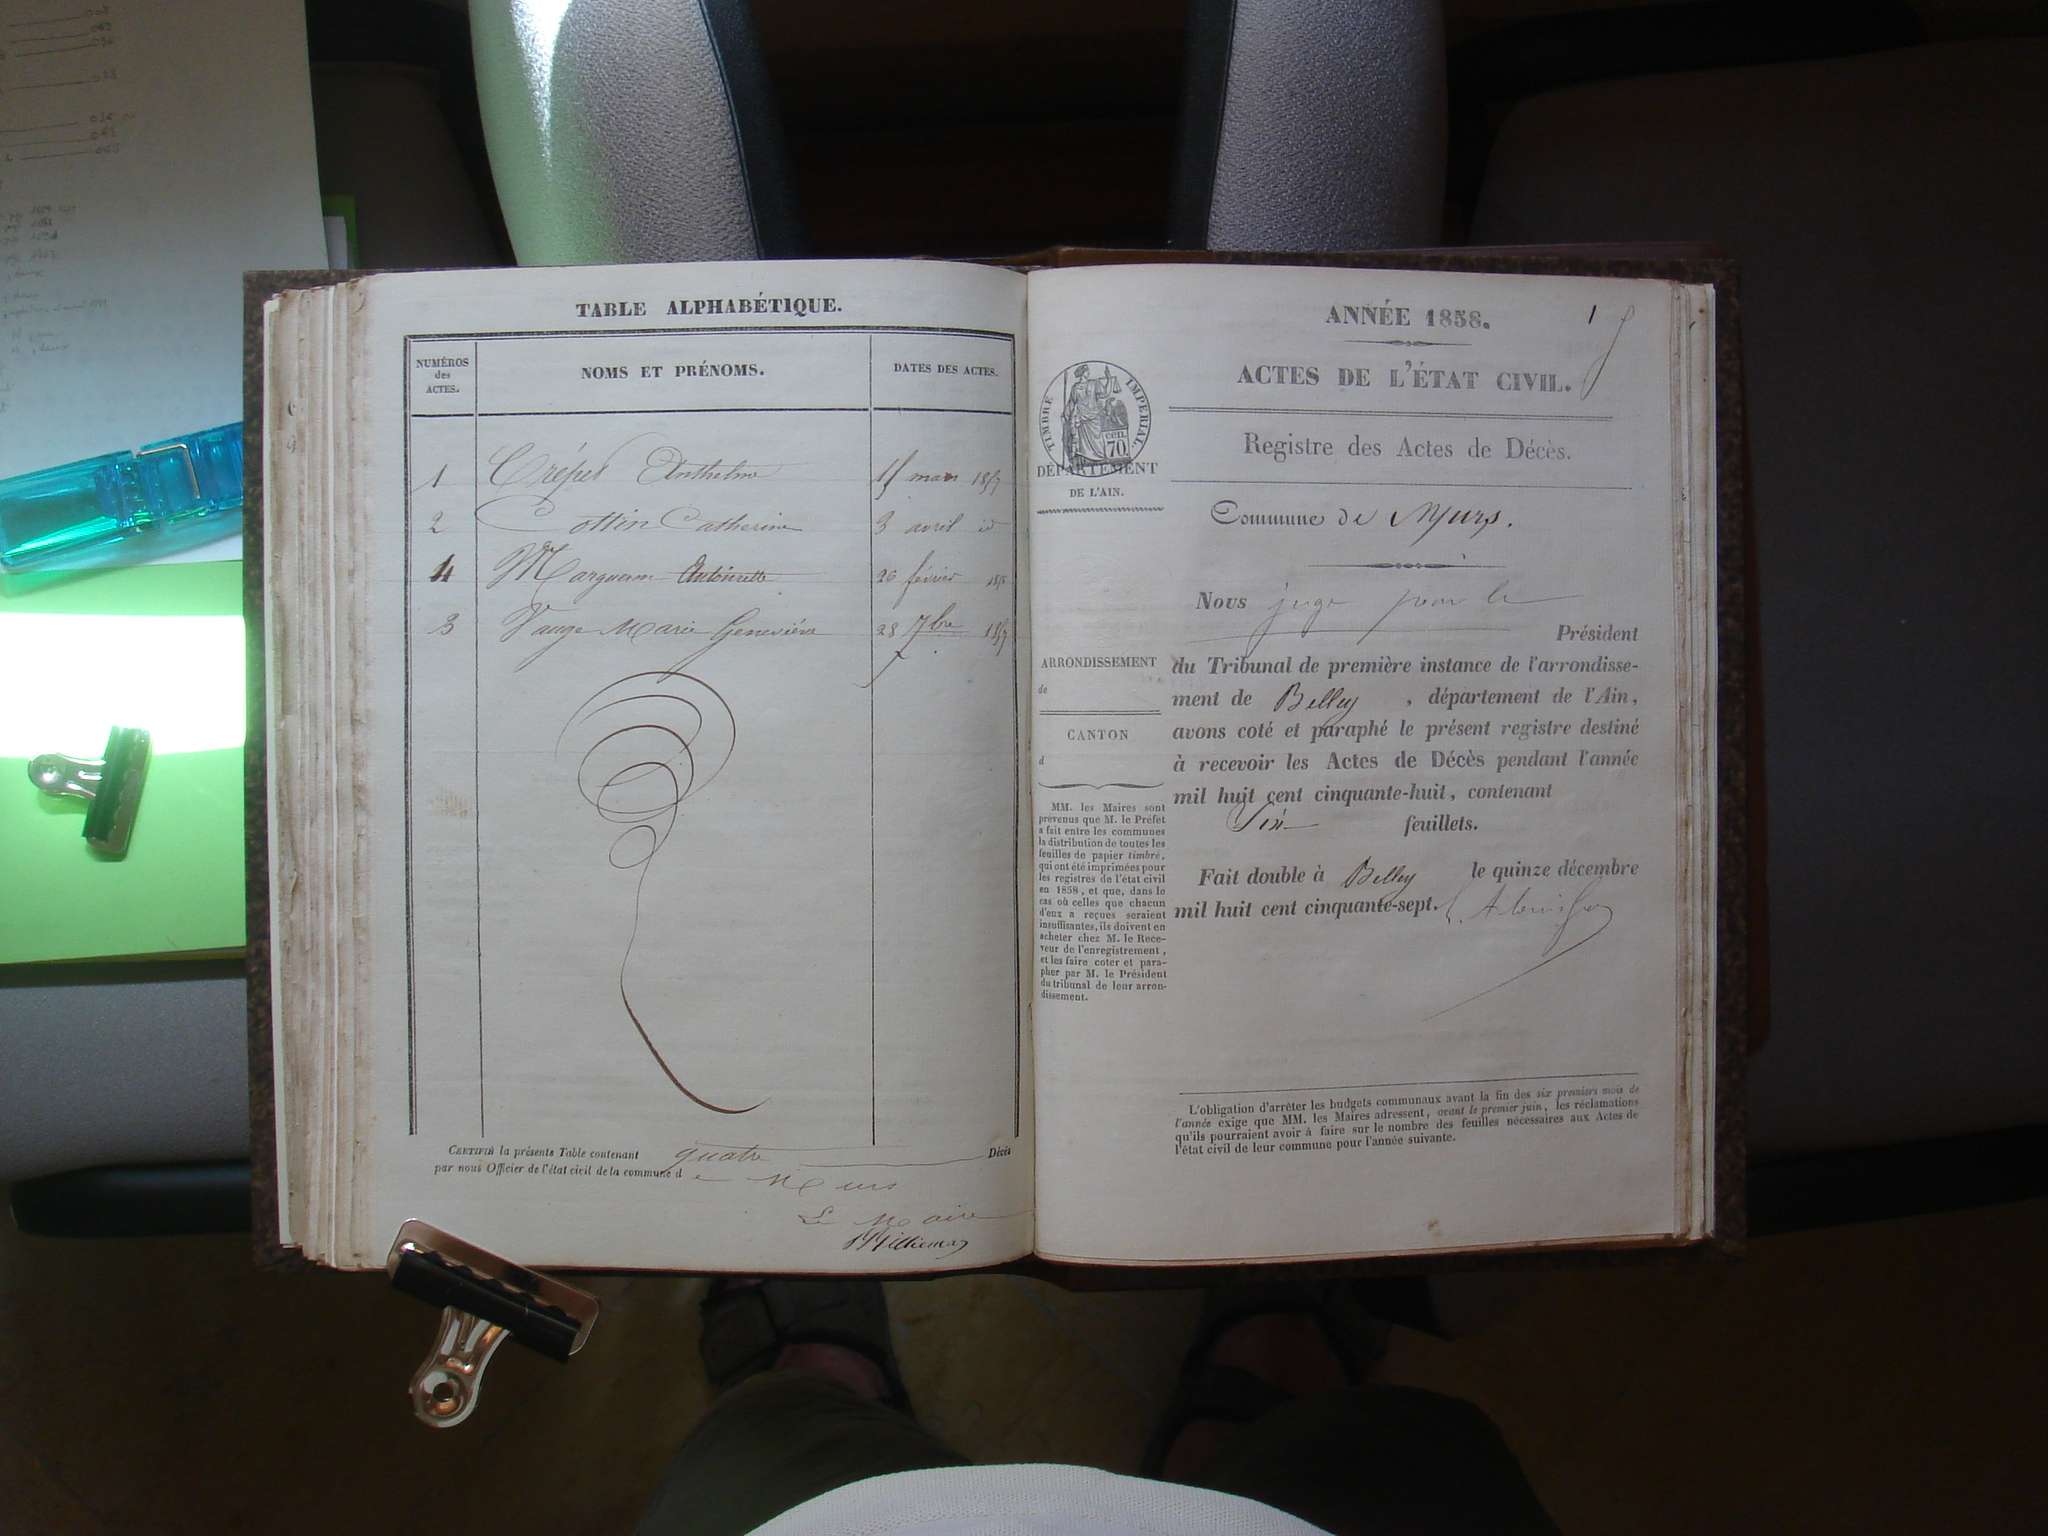 TABLE ALPHABÉTIQUE.
NUMÉROS
des
ACTES.
NOMS ET PRÉNOMS.
DATES DES ACTES.
1 Crépel Anthelme 15 mars 1857
2 Cottin Catherine 3 avril id
4 Antoinette 26 février 1858
3 Vauge Marie Geneviève 28 7bre 1857
CERTIFIÉ la présente Table contenant quatre Décès
par nous Officier de l'état civil de la commune de Murs
Le Maire
ANNÉE 1858.
1
ACTES DE L'ÉTAT CIVIL.
TIMBRE IMPÉRIAL.
cen.
70
DÉPARTEMENT
DE L'AIN.
Registre des Actes de Décès.
Commune de Murs.
Nous juge pour le
Président
ARRONDISSEMENT
de
CANTON
d
du Tribunal de première instance de l'arrondisse-
ment de Belley, département de l'Ain,
avons coté et paraphé le présent registre destiné
à recevoir les Actes de Décès pendant l'année
mil huit cent cinquante-huit, contenant
feuillets.
Fait double à Belley le quinze décembre
mil huit cent cinquante-sept.
MM. les Maires sont
prévenus que M. le Préfet
a fait entre les communes
la distribution de toutes les
feuilles de papier timbré,
qui ont été imprimées pour
les registres de l'état civil
en 1858, et que, dans le
cas où celles que chacun
d'eux a reçues seraient
insuffisantes, ils doivent en
acheter chez M. le Rece-
veur de l'enregistrement,
et les faire coter et para-
pher par M. le Président
du tribunal de leur arron-
dissement.
L'obligation d'arrêter les budgets communaux avant la fin des six premiers mois de
l'année exige que MM. les Maires adressent, avant le premier juin, les réclamations
qu'ils pourraient avoir à faire sur le nombre des feuilles nécessaires aux Actes de
l'état civil de leur commune pour l'année suivante.